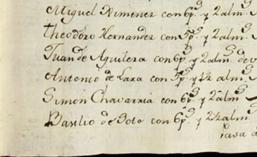 Miguel Ximenez con 6p.s y 2 alm.s
Theodoro Hernandez con 5p.s y 2 alm.s
Juan de Aguilera con 6p.s y 2 alm.s de
Antonio de Lara con 5p.s y 2 alm.s
Simon Chavarria con 6p.s y 2 alm.s
Basilio de Soto con 6p.s y 2 alm.s
casa